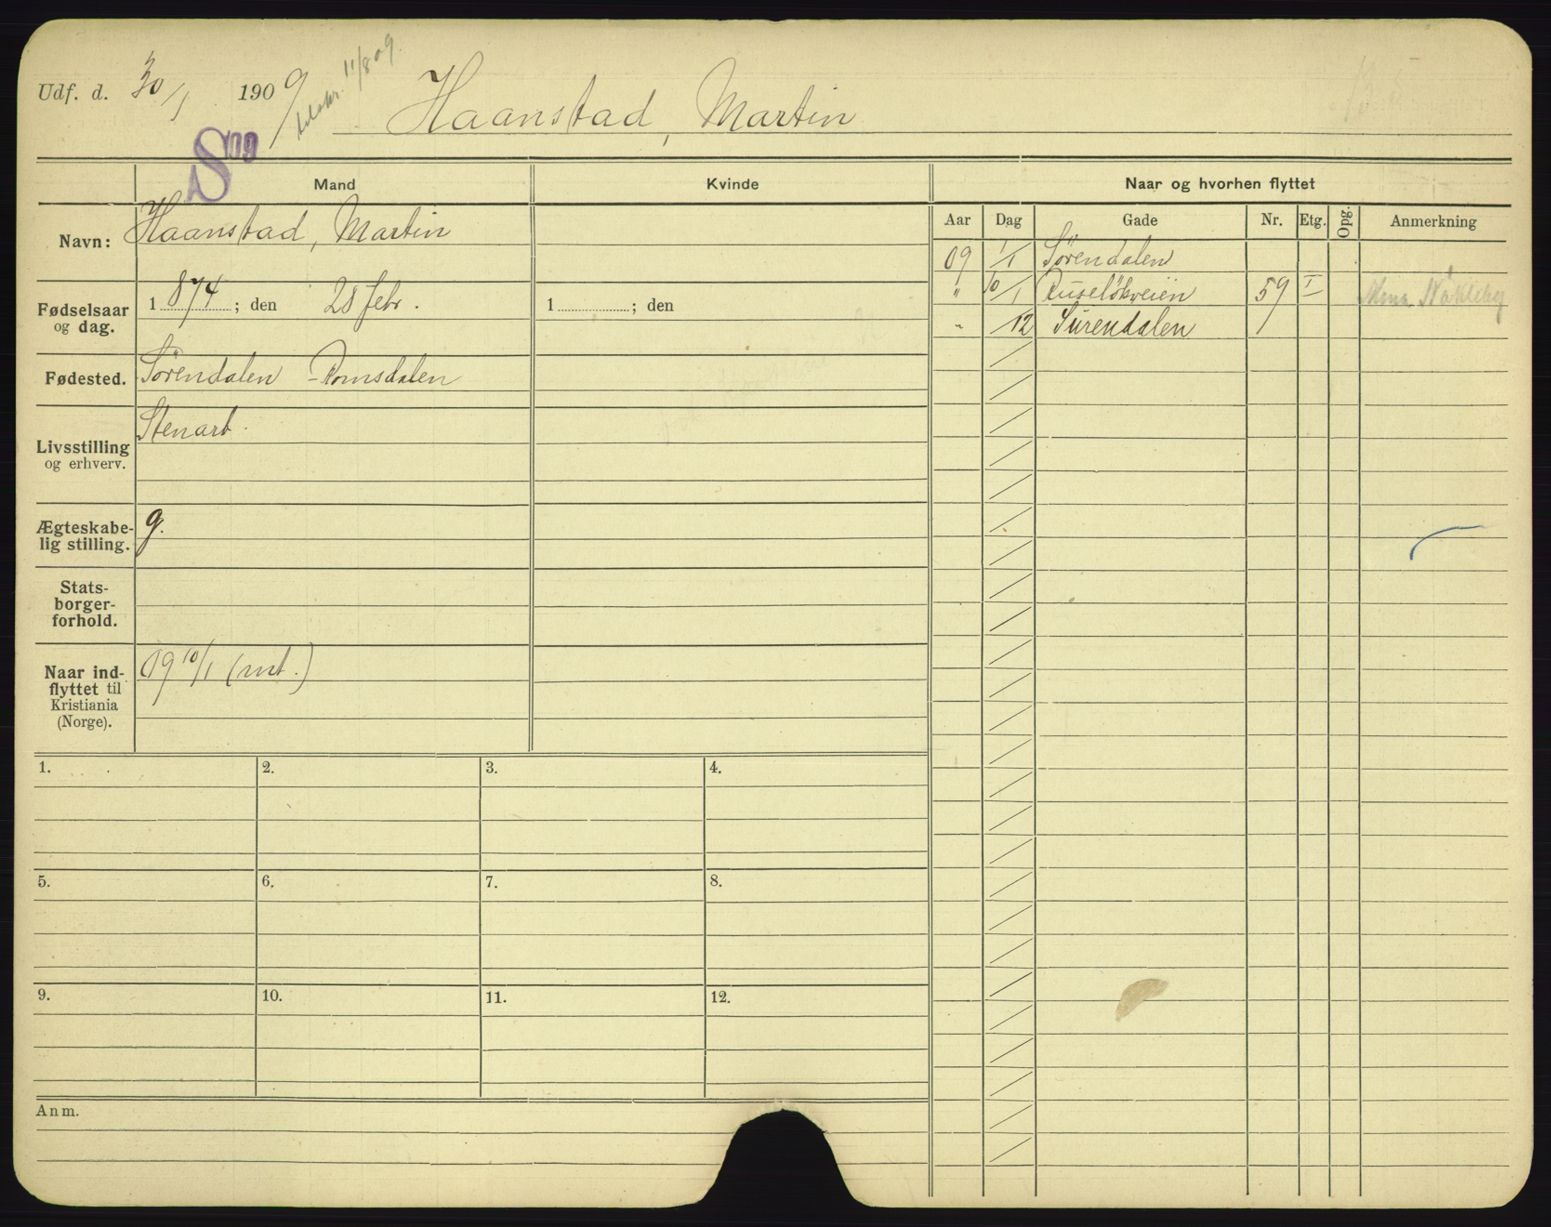 Udf. d. 30/1 1909 11/8 09.
Haanstad, Martin
S 09
Mand Kvinde
Navn: Haanstad, Martin
Fødselsaar og dag. 1874; den 28 febr. 1 ; den
Fødested. Sørendalen - Romsdalen
Livsstilling og erhverv. Stenarb.
Ægteskabelig stilling. g.
Statsborgerforhold.
Naar indflyttet til Kristiania (Norge). 09 10/1 (mt.)
1. 2. 3. 4.
5. 6. 7. 8.
9. 10. 11. 12.
Anm.
Naar og hvorhen flyttet
Aar Dag Gade Nr. Etg. Opg. Anmerkning
09 1/1 Sørendalen
" 10/1 Ruseløkveien 59 I
" /12 Surendalen